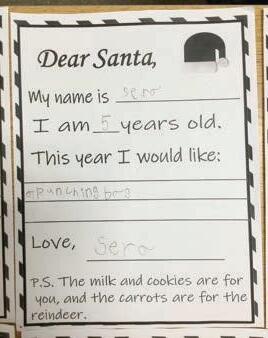 Dear Santa,
My name is sero
I am 5 years old.
This year I would like:
a punching bag
Love, Sero
P.S. The milk and cookies are for
you, and the carrots are for the
reindeer.